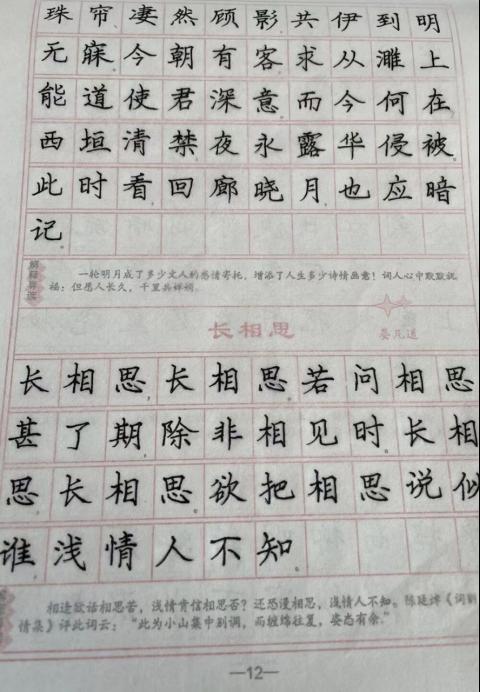 珠帘凄然顾影共伊到明
无寐今朝有客求从濉上
能道使君深意而今何在
西垣清禁夜永露华侵被
此时看回廊晓月也应暗
记
一轮明月成了多少文人的感情寄托，增添了人生多少诗情画意！词人心中默默祝
福：但愿人长久，千里共婵娟。
长相思
晏几道
长相思，长相思。若问相思
甚了期，除非相见时。长相
思，长相思。欲把相思说似
谁，浅情人不知。
相逢欲话相思苦，浅情肯信相思否？还恐漫相思，浅情人不知。陈廷焯《词则
情集》评此词云：“此为小山集中别调，而缠绵往复，姿态有余。”
—12—